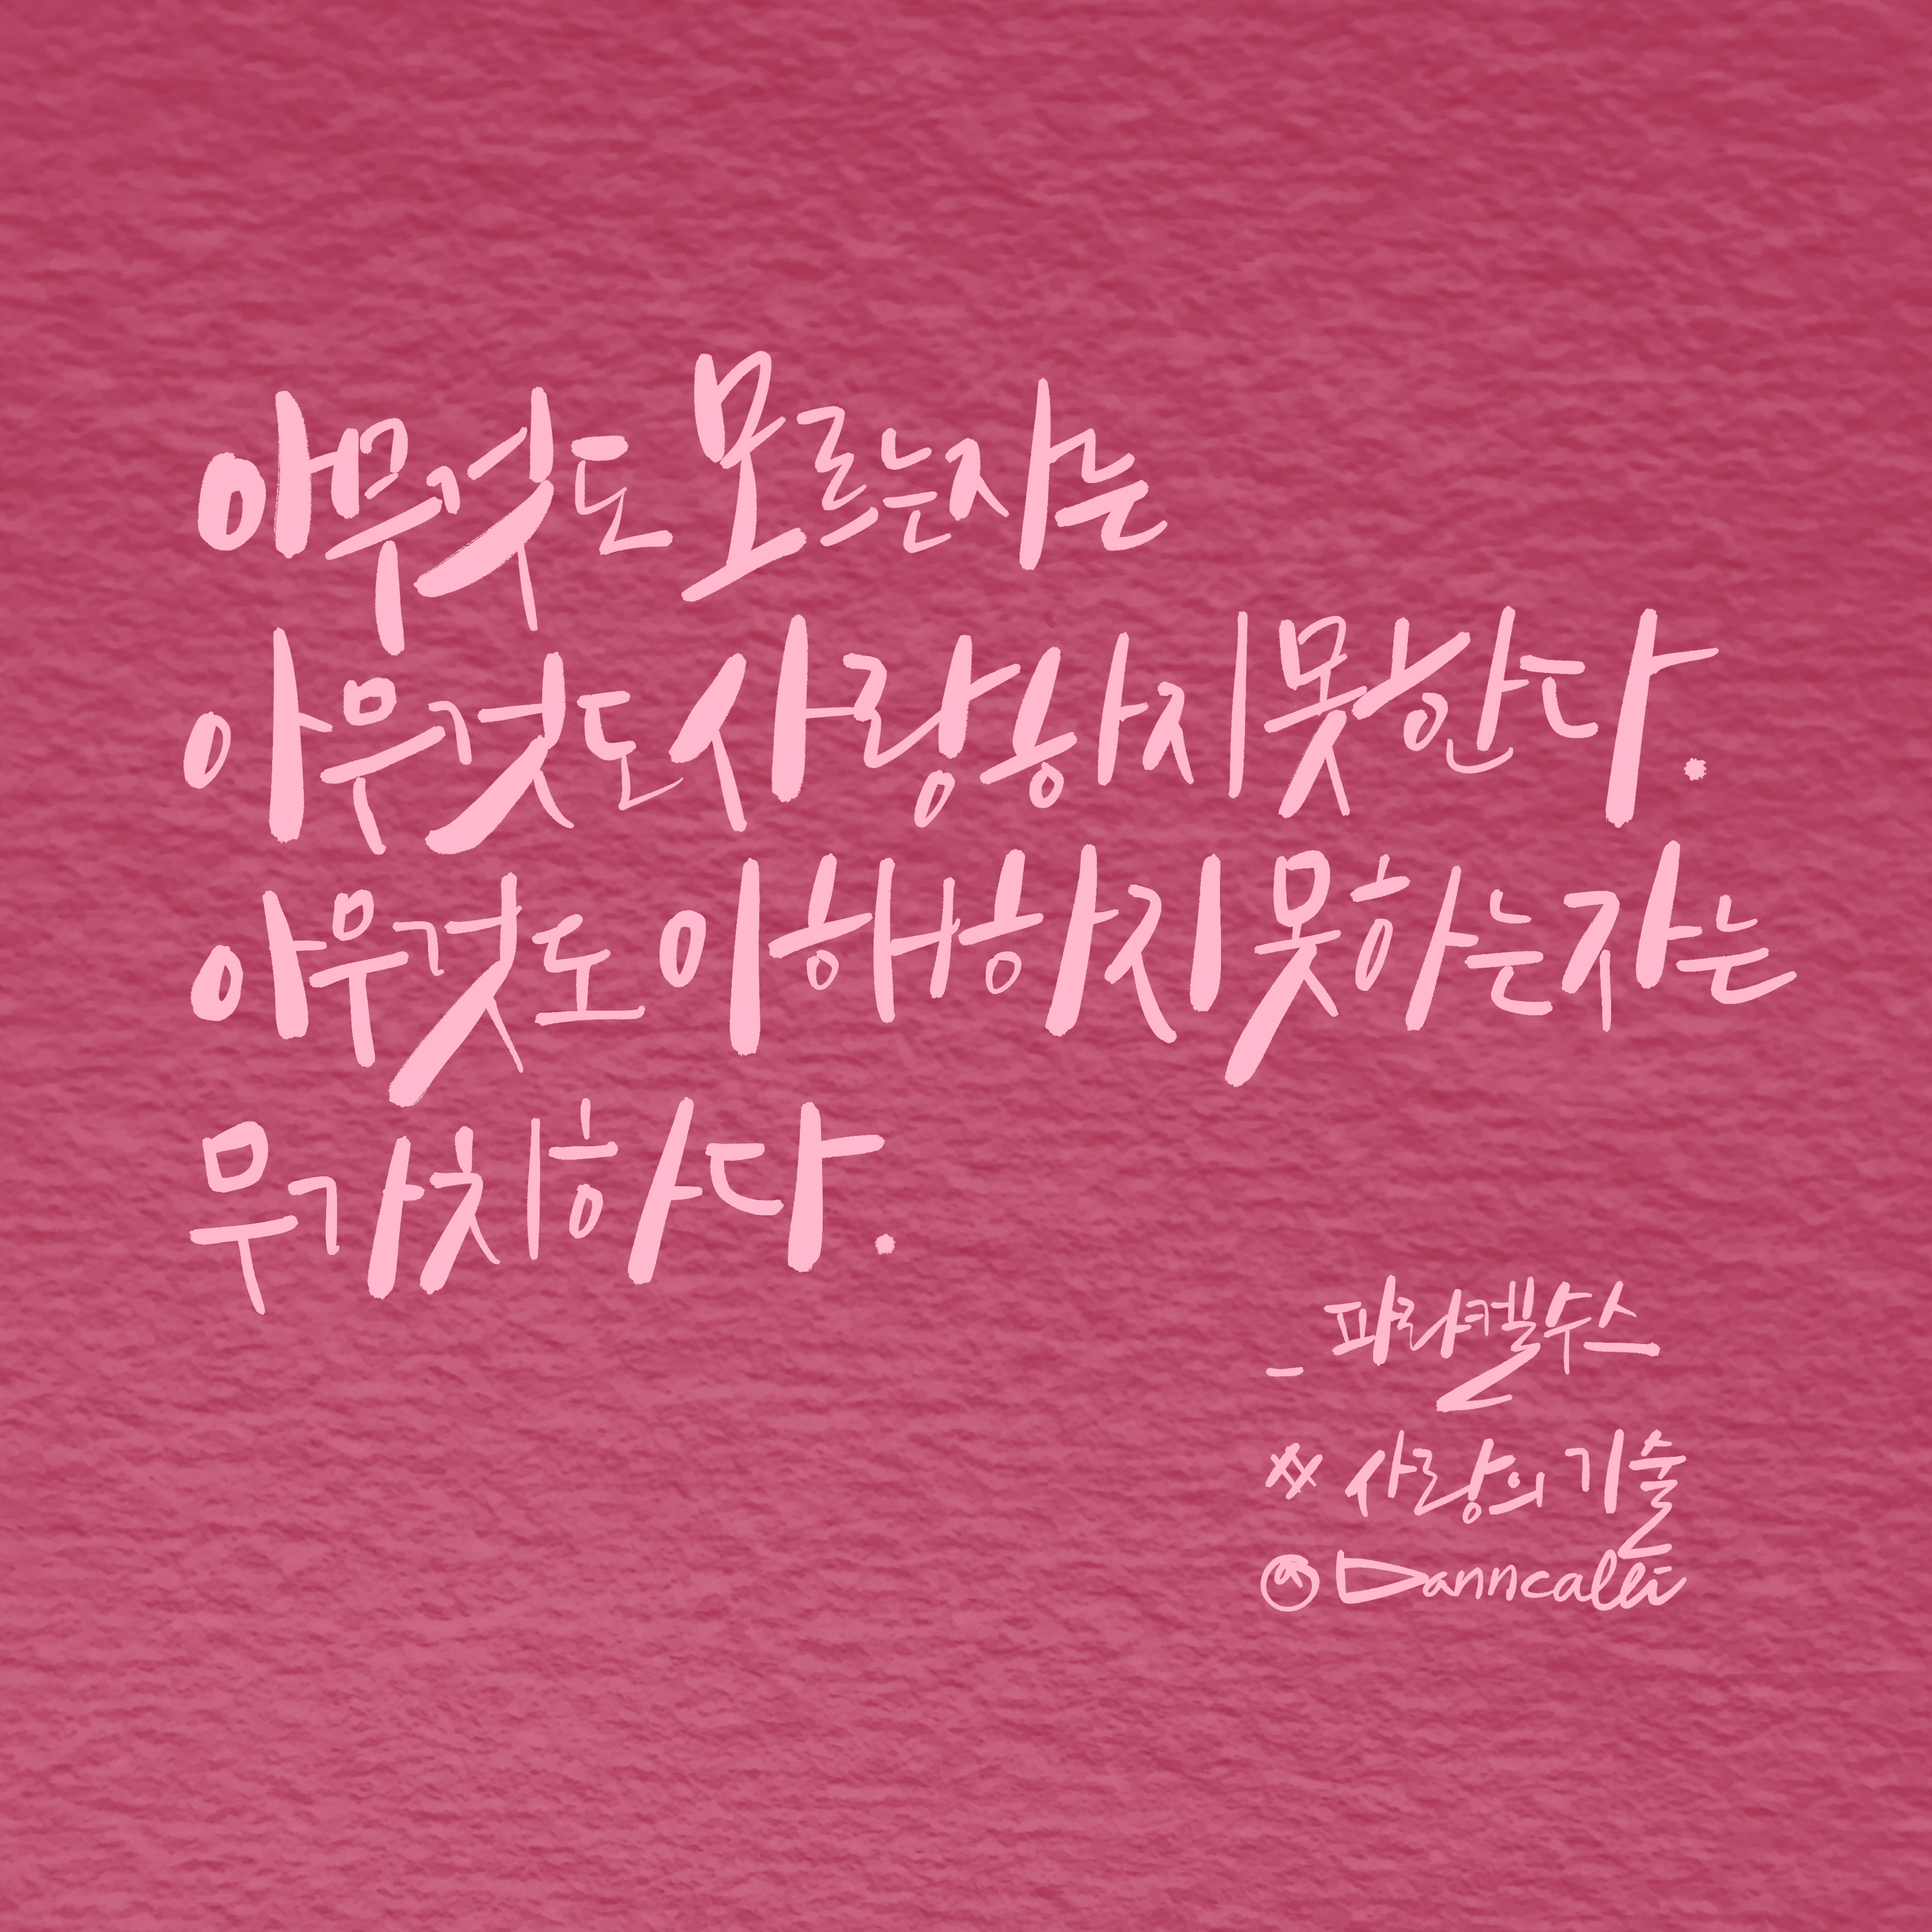 아무것도 모르는자는
아무것도사랑하지못한다.
아무것도 이해하지못하는자는
무가치하다.
_ 파라켈수스
# 사랑의 기술
@Danncalli